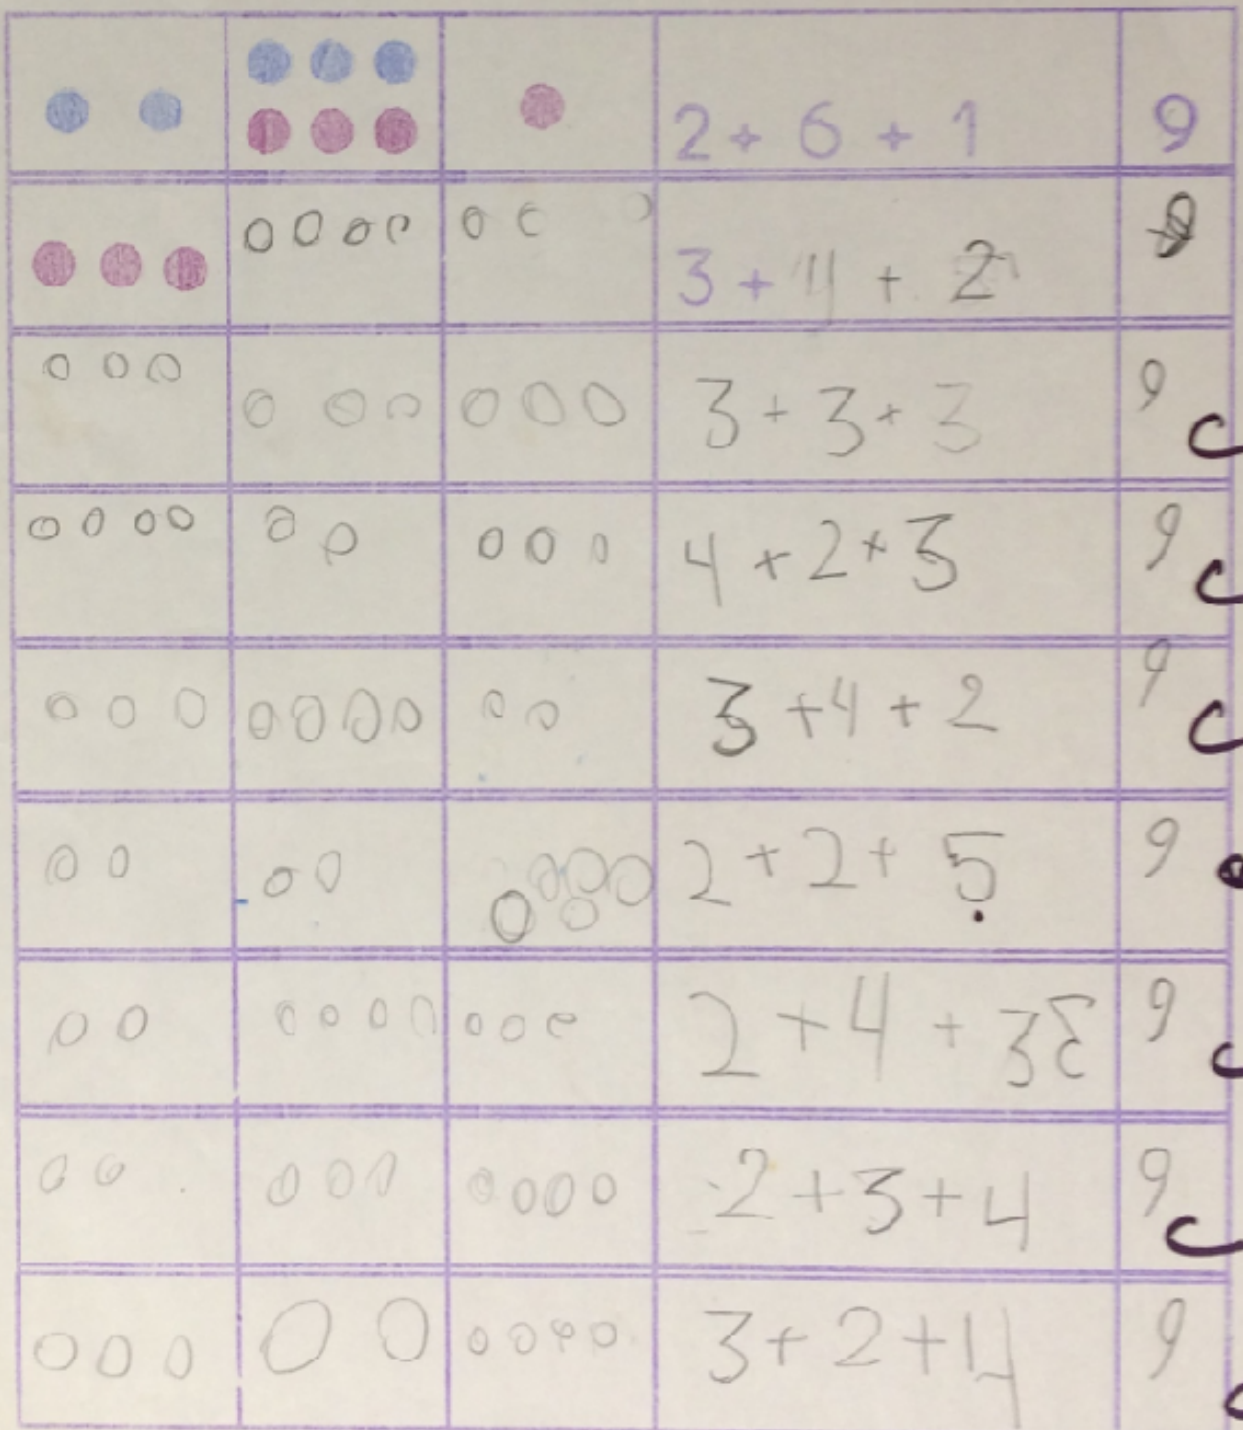 2 + 6 + 1 9
3 + 4 + 2 9
3 + 3 + 3 9
4 + 2 + 3 9
3 + 4 + 2 9
2 + 2 + 5 9
2 + 4 + 3 9
2 + 3 + 4 9
3 + 2 + 4 9